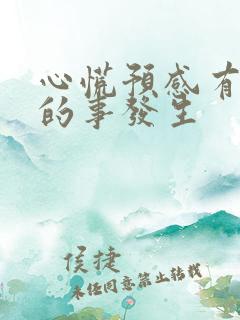 心慌預感有
的事發生
侯捷
未经同意禁止转载